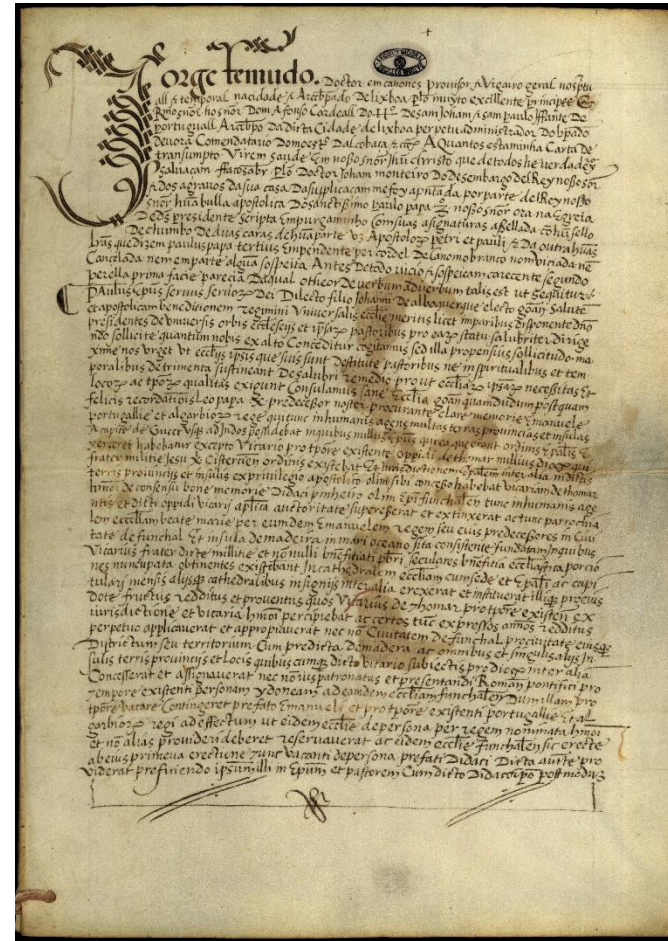 Jorge temudo. Doctor em canones provisor & Vigairo geral no spũ
all & temporal na cidade & Arcebpado de lixboa plo muyto excillente principee &
Rmo snõr ho snõr Dom Afonso Cardeall Do Ho De sam Joham & sam paulo Iffante de
portuguall Arcebpo Da dita Cidade de lixboa perpetu administrador Do bpado
devora Comendatario Do moestro Dalcobaca & cetra A Quantos esta minha Carta de
transumpto Virem saude Em nosso snõr Jhũ Christo que de todos he verdadeyro
salvaçam ffaco saber plo Doctor Joham monteiro Do desembargo del Rey nosso snõr
& dos agravos da sua casa Da suplicacam me foy apñtada por parte del Rey nosso
snõr hũa bulla apostolica Do sanctissimo paulo papa nosso snõr ora na Egreja
De ds presidente scripta Em purgaminho Com suas asignaturas assellada cõ hũ sello
De chumbo De duas caras de hũa parte Apostolos petri et pauli & Da outra hũas
lrãs que dizem paulus papa tertius Empendente per cordel De lanomo branco nom viciada nẽ
Cancelada nem em parte algũa sospeita Antes De todo vicio & sospeicam carecente segundo
per ella prima facie parecia Da qual o theor de verbum ad verbum tal is est ut sequitur
PAulus Epũs servus servoz Dei Dilecto filio Johanni De albuquerque electo goañ Salutẽ
et apostolicam benedictionem regimini Universalis ecclie meritis licet imparibus disponente dño
presidentes de universis orbis ecclesijs et ipsaz pastoribus pro eaz statu salubriter dirige
ndo sollicite quantum nobis ex alto Conceditur cogitamus sed illa propensius sollicitudo ma
xime nos urget ut ecclijs ipsis que suis sunt destitute pastoribus ne in spiritualibus et tem
poralibus detrimenta sustineant De salubri remedio prout eccliaz ipsaz necessitas et
locoz ac tpõz qualitas exigunt Consulamus sane Ecclia goañ quam dudum postquam
felicis recordationis leo papa X predecessor noster procurante clare memorie Emanuele
portugallie et algarbioz rege qui tunc in humanis agens multas terras provincias et insulas
A capite de usque ad Indos possidebat in quibus nullus epũs qui ea que erant ordinis epalis
exerceret habebatur excepto Vicario pro tpõre existente oppidi de thomar nullius dioces qui
frater militie Jesu X Cistercien ordinis existebat Et Jurisdictionem Epalem inter alia in dictis
terris provincijs et insulis ex privilegio apostolico olim sibi concesso habebat vicariam de thomar
hmõi de consensu bone memorie Didaci pinheiro olim Epi funchaleñ tunc in humanis age
ntis et dicti oppidi vicarij aplica auctoritate supresserat et extinxerat ac tunc parrochia
lem eccliam beate marie per eundem Emanuelem regem seu eius predecessores in Civi
tate de funchal Et insula de madeira in mari oceano sita consistente fundatam in quibus
Vicarius frater dicte militie et non nulli bñeffitiati pbri seculares bñefitia ecclesiastica porcio
nes nuncupata obtinentes existibant In cathedralem eccliam cum sede et Epali ac capi
tulari mensis alijsque cathedralibus in signijs inter alia erexerat et instituerat illique pro eius
dote fructus redditus et proventus quos Vicarius de thomar pro tpõre existeñ ex
iurisdictione et vicaria hmõi percipiebat ac certos tunc expressos annos redditus
perpetuo applicuerat et appropiaverat nec nõ Civitatem de funchal pro civitate eiusque
Districtum seu territorium Cum predicta De madera ac omnibus et singulis alijs In
sulis terris provincijs et locis quibuscumque dicto vicario subiectis pro dioces inter alia
Concesserat et assignaverat nec nõ ius patronatus et presentandi Romano pontifici pro
tempore existenti personam ydoneam ad eamdem eccliam funchaleñ Dum illam pro
tpõre vacare Contingeret prefato Emanueli et pro tpõre existenti portugallie Et al
garbioz regi ad effectum ut eidem ecclie de persona per regem nominata hmõi
et nõ alias provideri deberet reservaverat ac eidem ecclie funchaleñ sic erecte
ab eius primeva erectione tunc vacanti de persona prefati Didaci Dicta aucte pro
viderat preficiendo ipsum illi in Epum et pastorem Cum dicto Didaco epo post modum